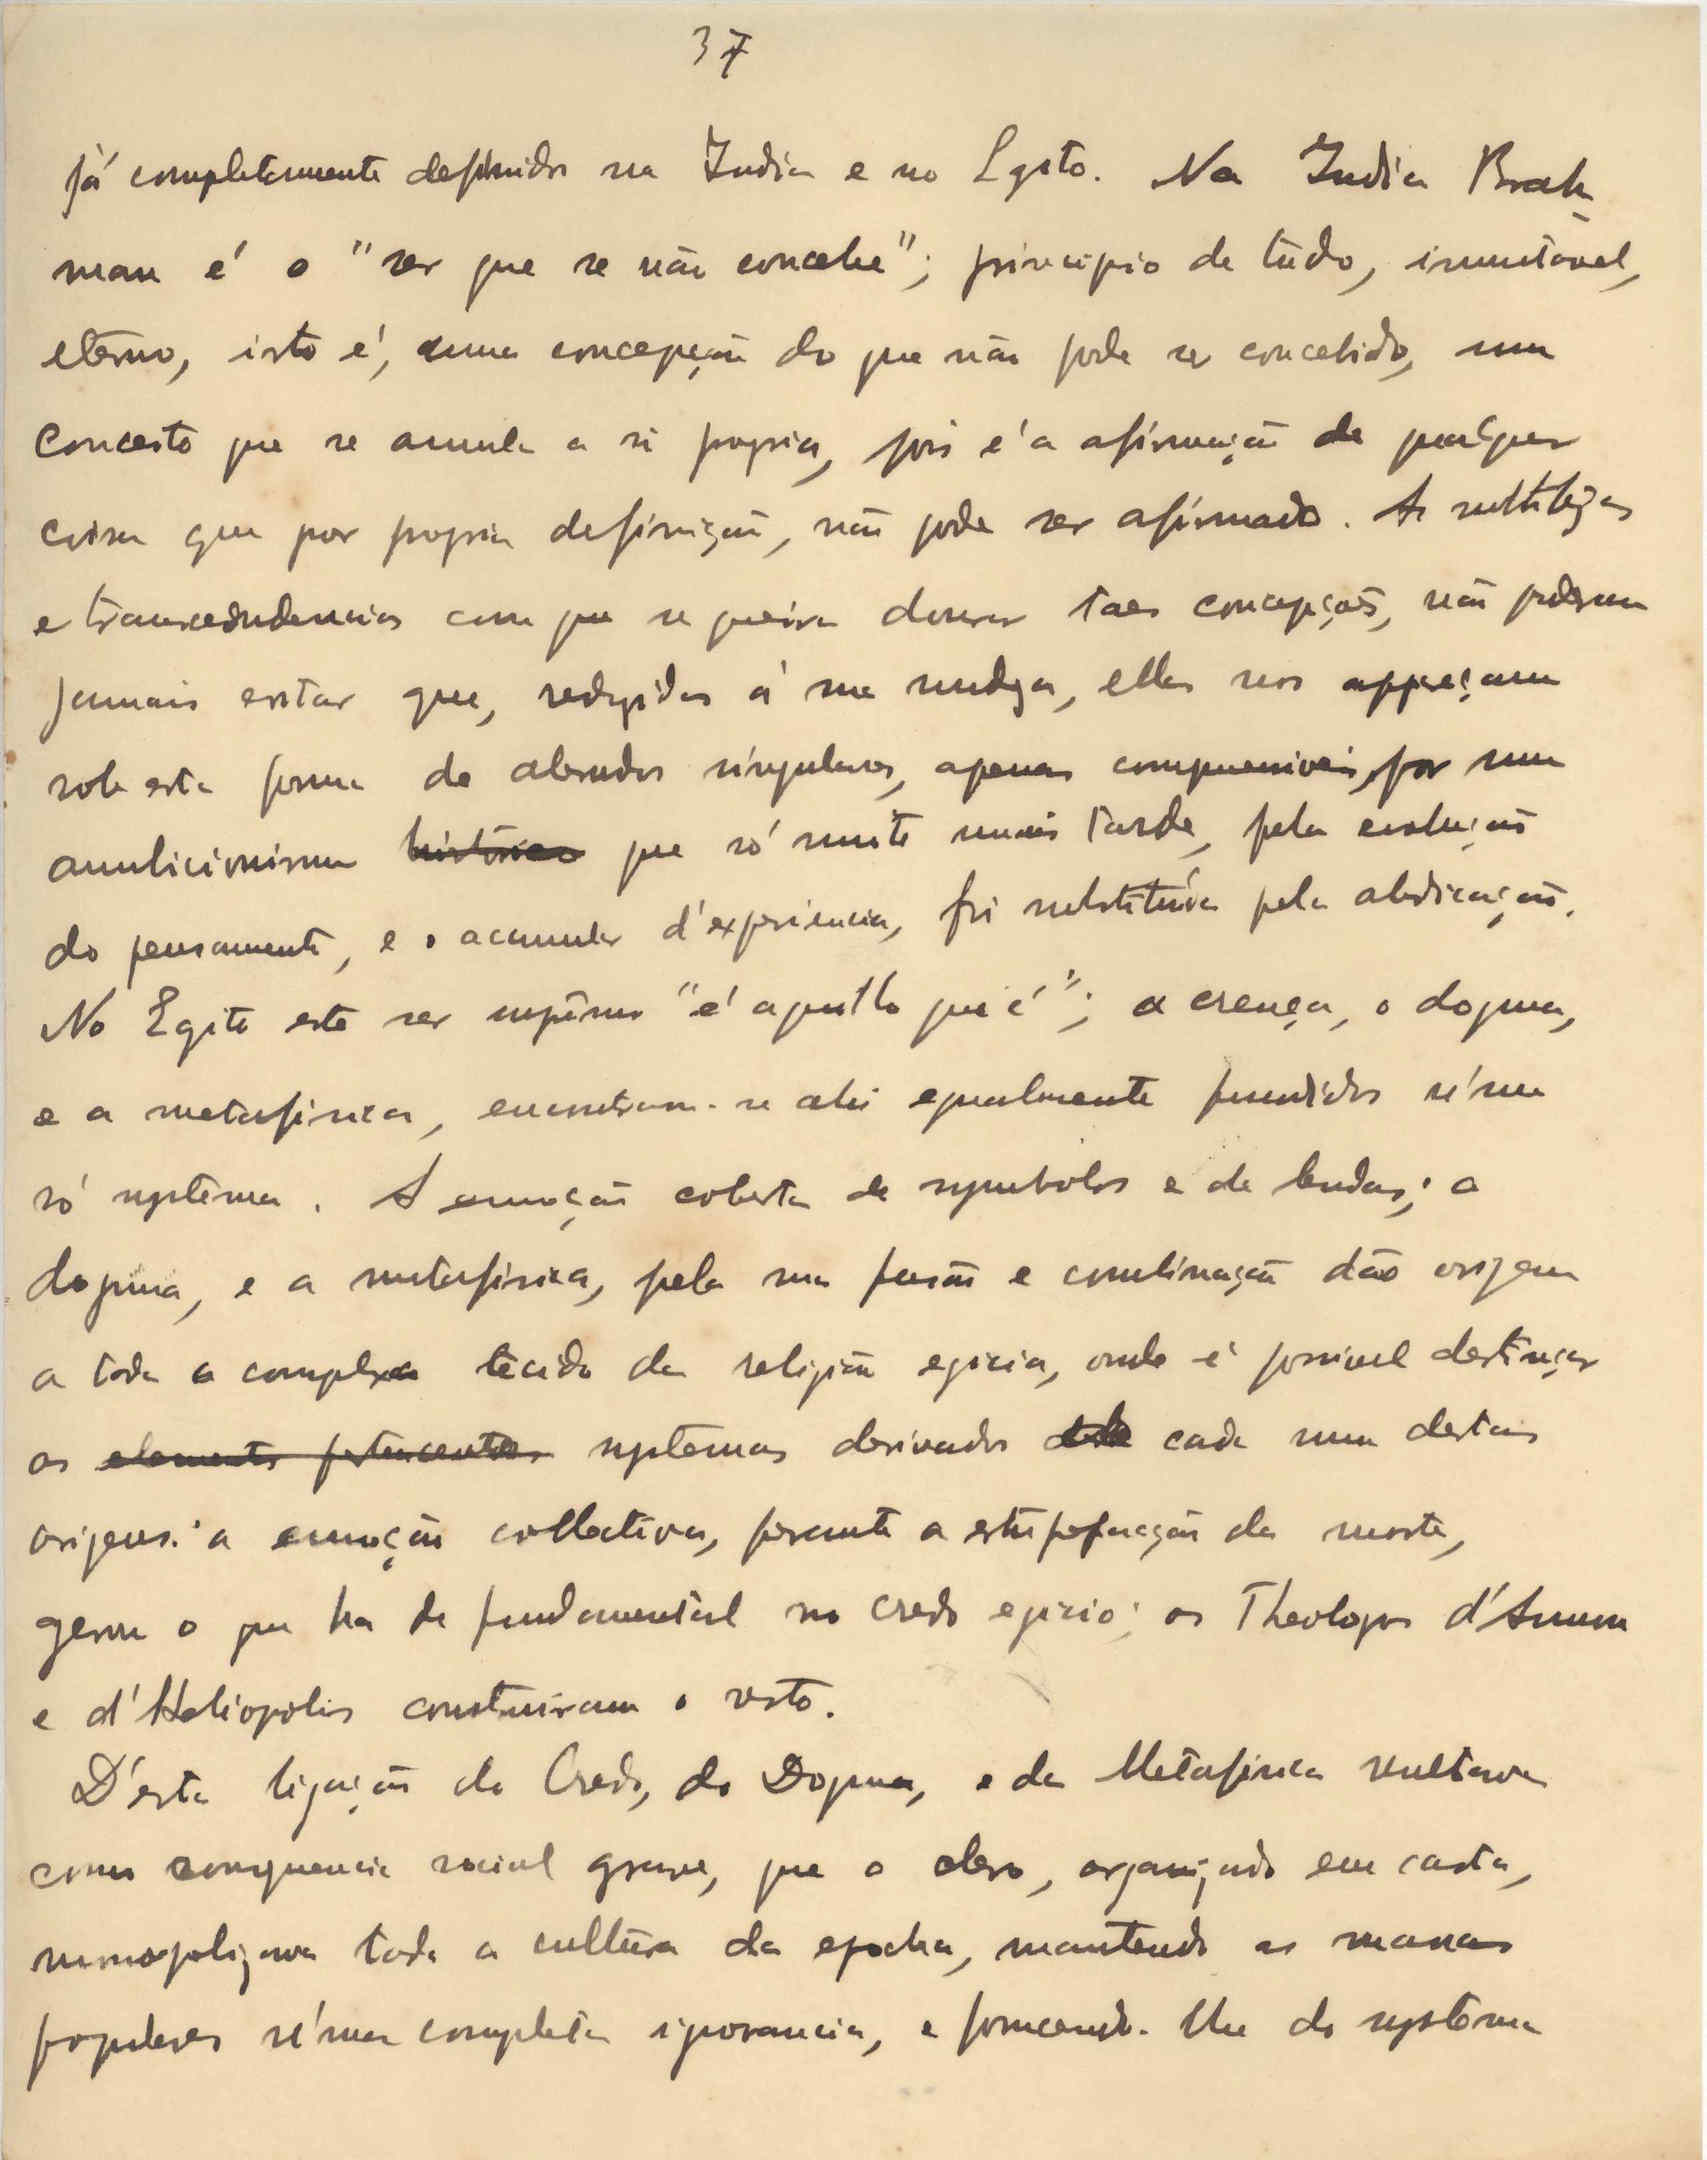 37
já completamente definidos na India e no Egito. Na India Brah-
man é o "ser que se não concebe"; principio de tudo, immutavel,
eterno, isto é, uma concepção do que não pode ser concebido, um
conceito que se annula a si proprio, pois é a afirmação de qualquer
coisa que por propria definição, não pode ser afirmado. As subtilezas
e transcedendencias com que se queira dourar taes concepções, não poderam
jamais evitar que, redigidas á sua nudeza, ellas nos appareçam
sob esta forma de absurdos singulares, apenas comprensiveis, por um
ambicionismo historico que só muito mais tarde, pela evolução
do pensamento, e o acumular d'experiencia, foi substituida pela abdicação.
No Egito este ser supremo "é aquillo que é"; a crença, o dogma,
e a metafisica, encontram-se ahi egualmente fundidos n'um
só systema. A emoção coberta de symbolos e de lendas; o
dogma, e a metafisica, pela sua fusão e combinação dão origem
a todo o complexo tecido da religião egicia, onde é possivel destinçar
os elementos pertencentes systemas derivados de cada uma destas
origens: a emoção collectiva, perante a estupefacção da morte,
gerou o que ha de fundamental no credo egicio; os Theologos d'Amon
e d'Heliopolis construiram o resto.
D'esta ligação do Credo, do Dogma, e da Metafisica resultava
como consequencia social grave, que o clero, organizado em casta,
monopolizava toda a cultura da epocha, mantendo as massas
populares n'uma completa ignorancia, e fornecendo-lhe do systema